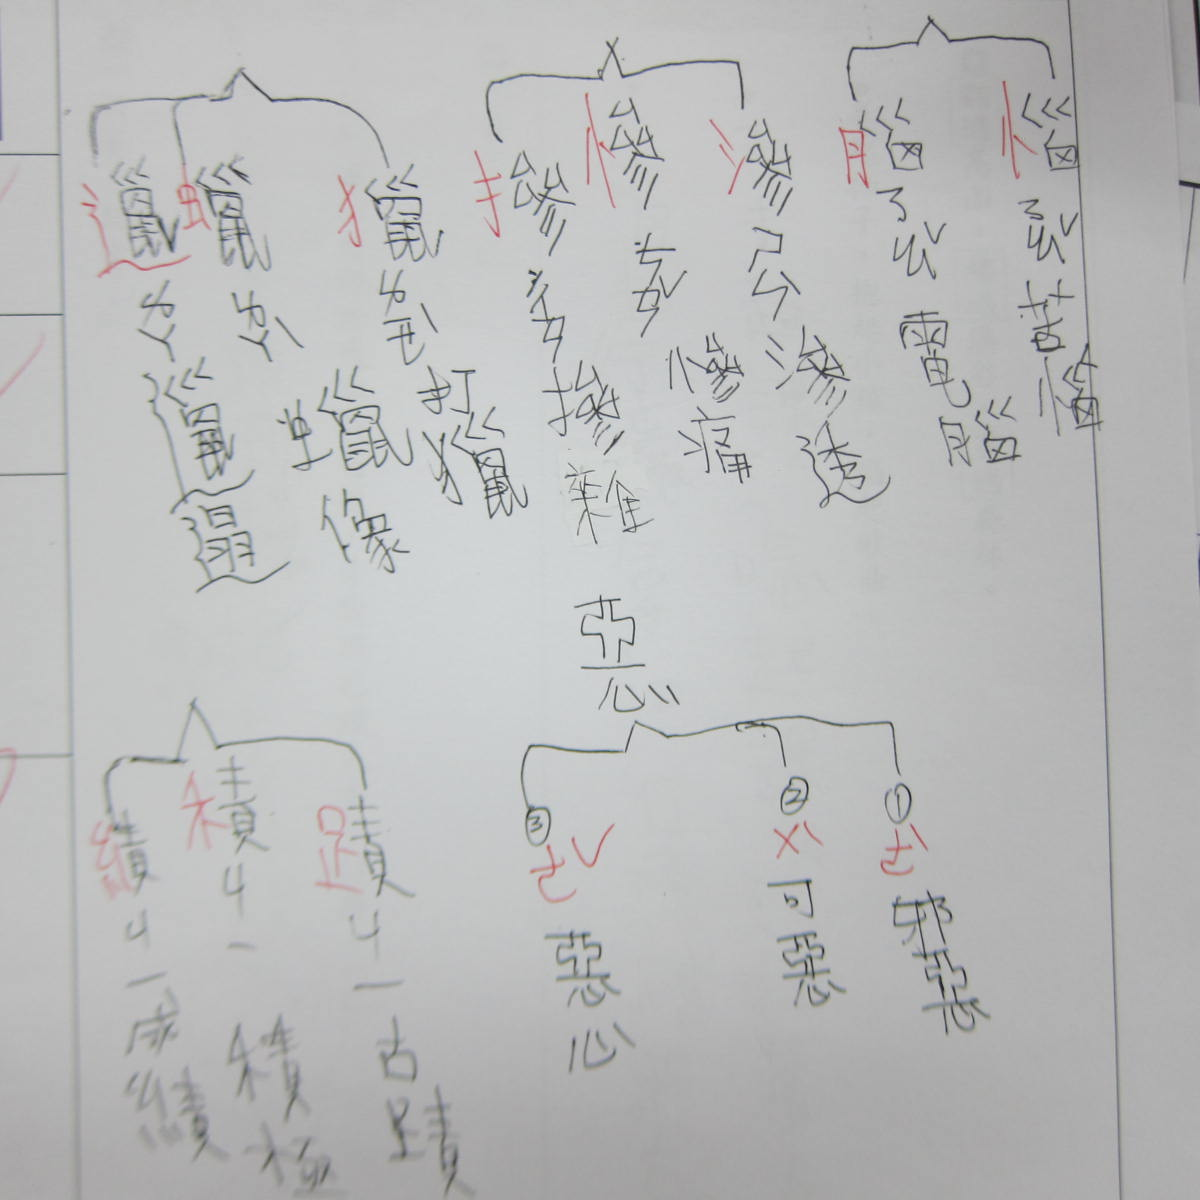 惱ㄋㄠˇ苦惱
腦ㄋㄠˇ電腦
滲ㄕㄣˋ滲透
慘ㄘㄢˇ慘痛
摻ㄔㄢ摻雜
獵ㄌㄧㄝˋ打獵
蠟ㄌㄚˋ蠟像
邋ㄌㄚ邋遢
惡
①ㄜˋ邪惡
②ㄨˋ可惡
③ㄜˇ惡心
蹟ㄐㄧ古蹟
積ㄐㄧ積極
績ㄐㄧ成績